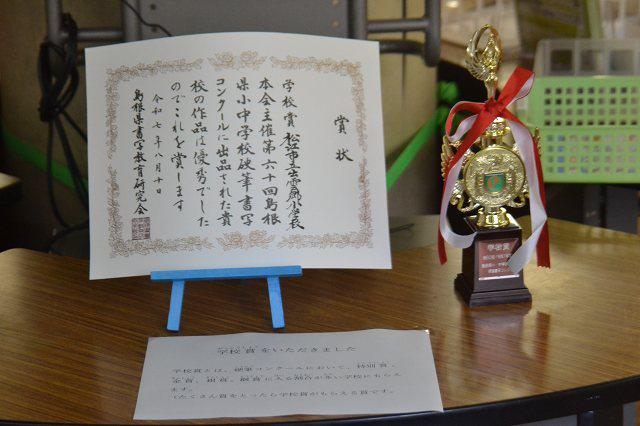 賞状
学校賞 松江市立出雲郷小学校
本会主催第六十回島根
県小中学校硬筆書写
コンクールに出品された貴
校の作品は優秀でした
のでこれを賞します
令和七年八月十日
島根県書写教育研究会
学校賞
学校賞をいただきました
学校賞とは、硬筆コンクールにおいて、特別賞、
金賞、銀賞、銅賞に入る割合が多い学校にもらえ
ます。
(たくさん賞をとったら学校賞がもらえる賞です。